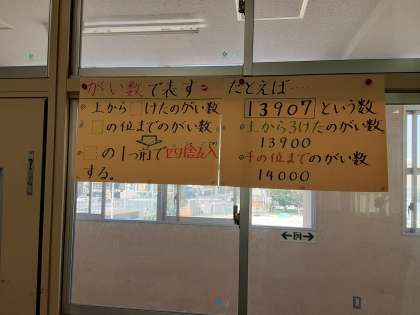 がい数で表す
・上から□けたのがい数
・□の位までのがい数
⇩
□の1つ前で四捨五入
する。
たとえば‥‥
13907という数
・上から3けたのがい数
13900
・千の位までのがい数
14000